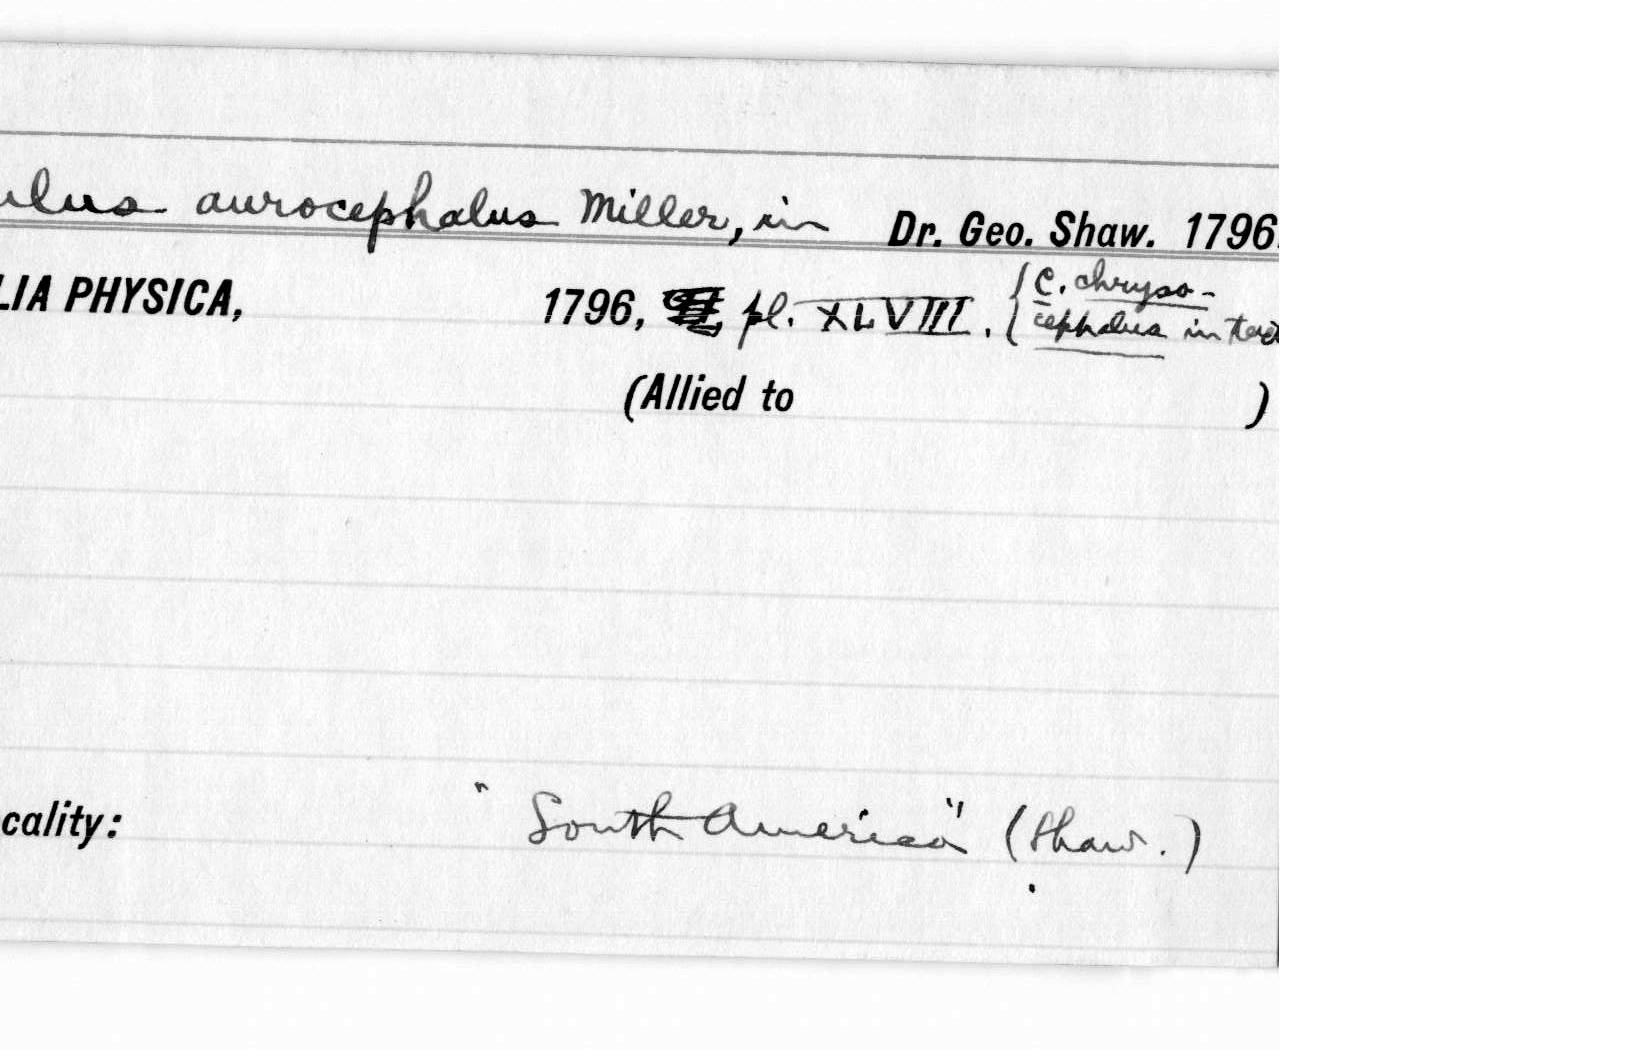 ulus aurocephalus Miller, in Dr. Geo. Shaw. 1796.
LIA PHYSICA, 1796, pl. XLVIII. { C. chryso-
cephalus in
(Allied to )
cality: "South America" (Shaw.)